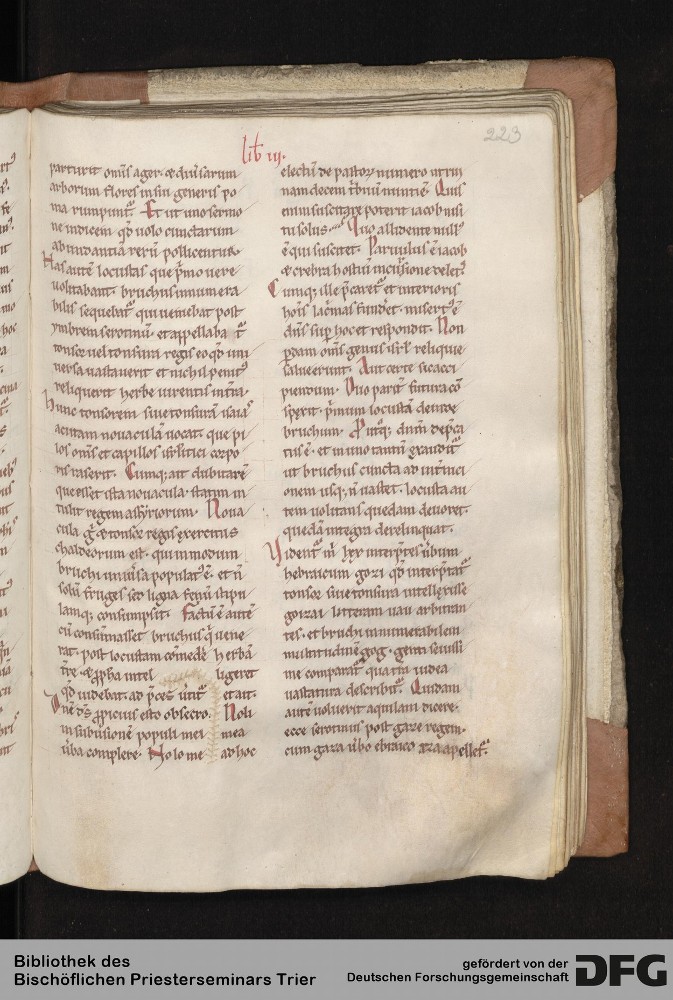 223
lib iii.
parturit omīs ager· & diuſarum
arborum flores in ſui generis po
ma rumpunt᷑. Et ut uno ſermo
ne indicem qd uolo cunctarum
abundantia rerū pollicentur.
Has autē locuſtas que pͥmo uere
uolitabant. bruchus innumera
bilis ſequebat᷑ qui ueniebat poſt
ymbrem ſerotinū. et appellaba t᷑
tonſor uel tonſura regis eo qd uni
uerſa uaſtauerit et nichil penitꝰ
reliquerit herbe uirentis in tr̄a.
Hunc tonſorem ſiue tonſurā iſaiaſ
acutam nouaculā uocat. que pi
los om̄s et capillos iſrlitici corpo
ris raſerit. Cumq; ait dubitarē
que eſſet iſta nouacula. ſtatim in
tulit regem aſſyriorum. Noua
cula g̊ & tonſor regis exercitus
chaldeorum eſt. qui in modum
bruchi uniūſa populatꝰ ē. et n̄
ſolū fruges ſed ligna fenū ſtipu
lamq; conſumpſit. Factū ē autē
cū conſūmaſſet bruchus q̇ uene
rat. poſt locuſtam comedē herbā
tr̄e. & ꝓpha intel ligeret
qd uidebat. ad p̄ces uͥtit᷑ et ait.
Dn̄e ds̄ ꝓpicius eſto obſecro. Noli
in ſubuſionē populi mei mea
ūba complere. Nolo me ad hoc
electū de paſtorꝝ numero ut rui
nam decem tribuū nuntiē. Quis
enim ſuſcitare poterit iacob niſi
tu ſolus. Quo allidente nullꝰ
ē qui ſuſcitet. Paruulus ē iacob
& crebra hoſtiū incurſione deletꝰ
Cumq; ille p̄caret᷑ et interioris
hoīs lac̄mas fundet. miſertꝰ ē
dn̄s ſuꝑ hoc et reſpondit. Non
ꝑdam omīs genus iſrl. reliquie
ſalue erunt. Aut certe ſic acci
piendum. Duo parit᷑ futura cō
ſpexit. pͥmum locuſtā deinde
bruchum. Primūq; dum dep̄ca
tus ē. et in uno tantū exaudit᷑
ut bruchus cuncta ad int̄nici
onem uſq; n̄ uaſtet. locuſta au
tem uolitans quedam deuoret.
quedā integra derelinquat.
Uident᷑ m̄ lxx interp̄tes ūbum
hebraicum gozi qd interp̄tat᷑
tonſor ſiue tonſura intellexiſſe
goizai litteram uau arbitran
tes. et bruchi innumerabilem
multitudinē gog. gentī ſeuiſſi
me comparat᷑ qua t̄ra iudea
uaſtatura deſcribit᷑. Quidam
autē uoluerit aquilam dicere.
ecce ſerotinus poſt gaze regem.
cum gaza ūbo ebraico aza apelleſ᷑.
Bibliothek des
Bischöflichen Priesterseminars Trier
gefördert von der
Deutschen Forschungsgemeinschaft
DFG